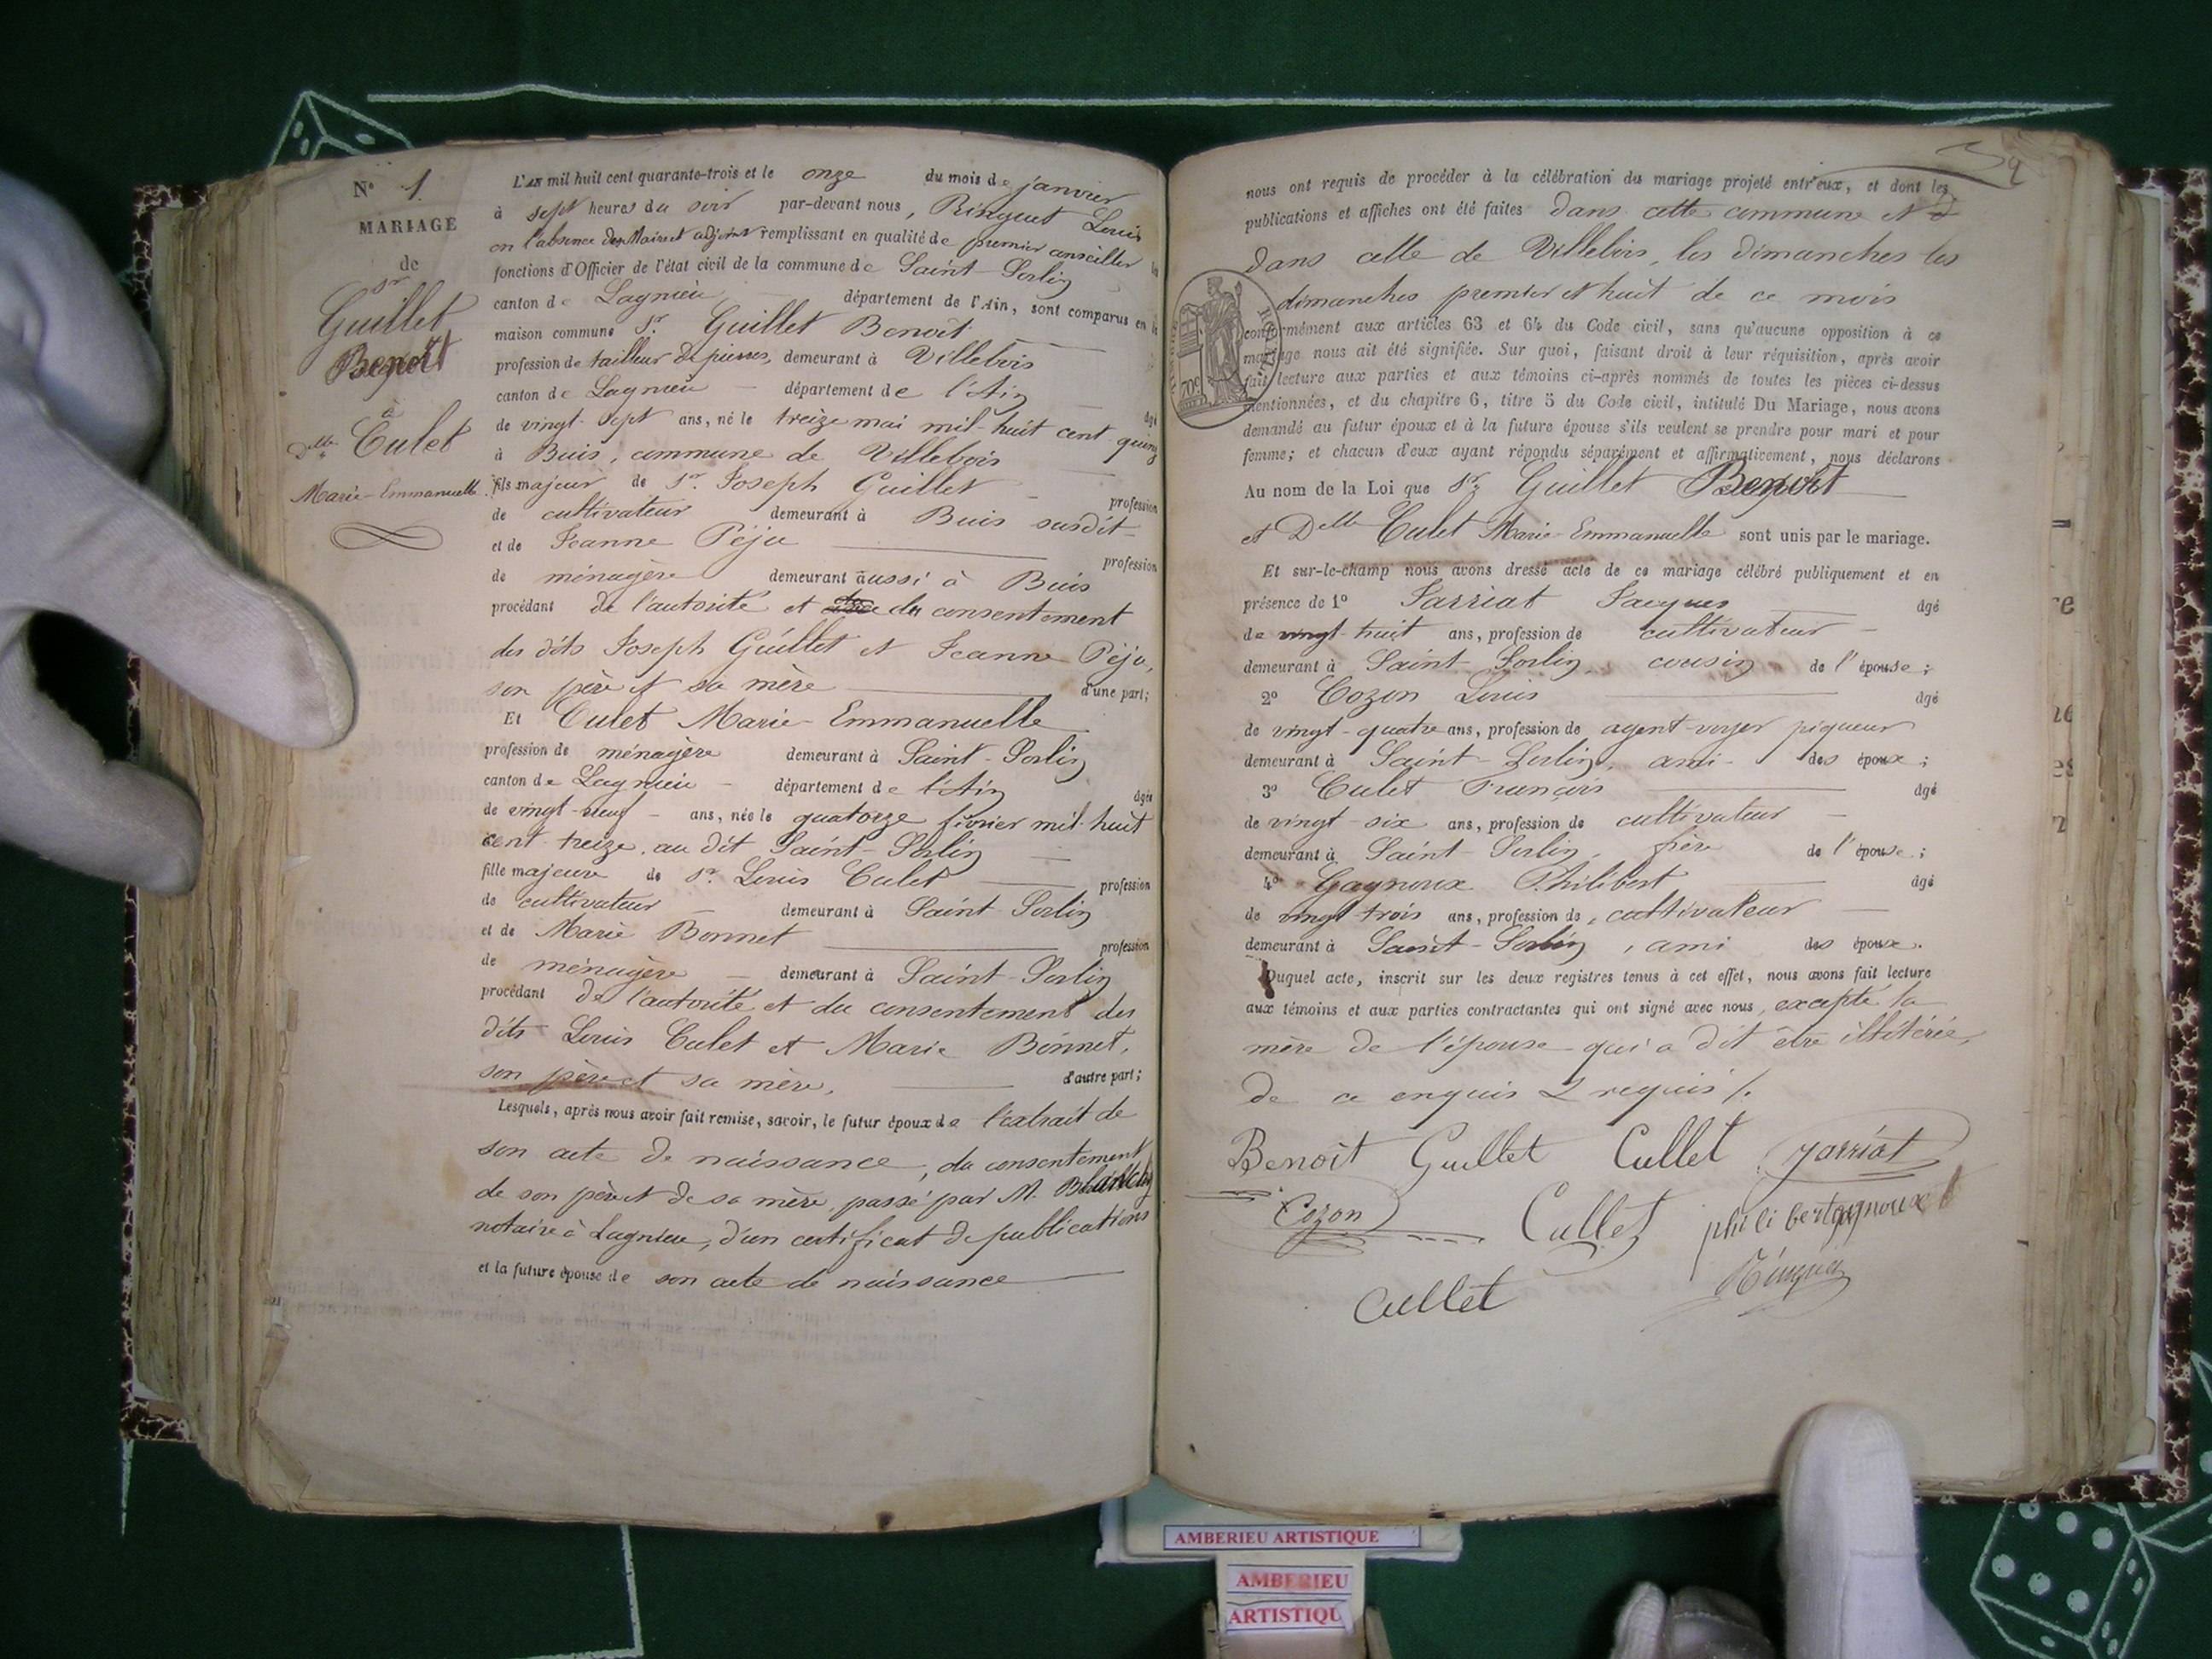 N° 1
MARIAGE
de
Sr
Guillet
Benoît
à
Delle Culet
Marie-Emmanuelle
L'AN mil huit cent quarante-trois et le onze du mois de janvier
à sept heures du soir par-devant nous, Ringuet Louis
en l'absence des Maire et adjoint remplissant en qualité de premier conseiller les
fonctions d'Officier de l'état civil de la commune de Saint-Sorlin
canton de Lagnieu département de l'Ain, sont comparus en la
maison commune Sr. Guillet Benoît
profession de tailleur de pierres, demeurant à Villebois
canton de Lagnieu département de l'Ain âgé
de vingt-sept ans, né le treize mai mil-huit cent quinze
à Buis, commune de Villebois
fils majeur de Sr. Joseph Guillet profession
de cultivateur demeurant à Buis susdit
et de Jeanne Péju profession
de ménagère demeurant aussi à Buis
procédant de l'autorité et du consentement
des dits Joseph Guillet et Jeanne Péju,
son père et sa mère d'une part;
Et Culet Marie-Emmanuelle
profession de ménagère demeurant à Saint-Sorlin
canton de Lagnieu département de l'Ain âgée
de vingt-neuf ans, née le quatorze février mil-huit
cent treize au dit Saint-Sorlin
fille majeure de Sr. Louis Culet profession
de cultivateur demeurant à Saint-Sorlin
et de Marie Bonnet profession
de ménagère demeurant à Saint-Sorlin
procédant de l'autorité et du consentement des
dits Louis Culet et Marie Bonnet,
son père et sa mère, d'autre part;
Lesquels, après nous avoir fait remise, savoir, le futur époux de l'extrait de
son acte de naissance, du consentement
de son père et de sa mère, passé par M.
notaire à Lagnieu, d'un certificat de publications
et la future épouse de son acte de naissance
nous ont requis de procéder à la célébration du mariage projeté entr'eux, et dont les
publications et affiches ont été faites dans cette commune et
dans celle de Villebois, les dimanches les
dimanches premier et huit de ce mois
conformément aux articles 63 et 64 du Code civil, sans qu'aucune opposition à ce
mariage nous ait été signifiée. Sur quoi, faisant droit à leur réquisition, après avoir
fait lecture aux parties et aux témoins ci-après nommés de toutes les pièces ci-dessus
mentionnées, et du chapitre 6, titre 5 du Code civil, intitulé Du Mariage, nous avons
demandé au futur époux et à la future épouse s'ils veulent se prendre pour mari et pour
femme; et chacun d'eux ayant répondu séparément et affirmativement, nous déclarons
Au nom de la Loi que Sr Guillet Benoît
et Delle Culet Marie-Emmanuelle sont unis par le mariage.
Et sur-le-champ nous avons dressé acte de ce mariage célébré publiquement et en
présence de 1° Jarriat Jacques âgé
de vingt-huit ans, profession de cultivateur
demeurant à Saint-Sorlin, cousin de l'épouse;
2° Cozon Louis âgé
de vingt-quatre ans, profession de agent-voyer piqueur
demeurant à Saint-Sorlin, ami des époux;
3° Culet François âgé
de vingt-six ans, profession de cultivateur
demeurant à Saint-Sorlin, frère de l'épouse;
4° Gagnoux Philibert âgé
de vingt-trois ans, profession de cultivateur
demeurant à Saint-Sorlin, ami des époux.
Duquel acte, inscrit sur les deux registres tenus à cet effet, nous avons fait lecture
aux témoins et aux parties contractantes qui ont signé avec nous, excepté la
mère de l'épouse qui a dit être illitérée,
de ce enquis & requis /.
Benoît Guillet Cullet Jarriat
Cozon Cullet philibert gagnoux
Ringuet
Cullet
70c
AMBERIEU ARTISTIQUE
AMBERIEU
ARTISTIQU